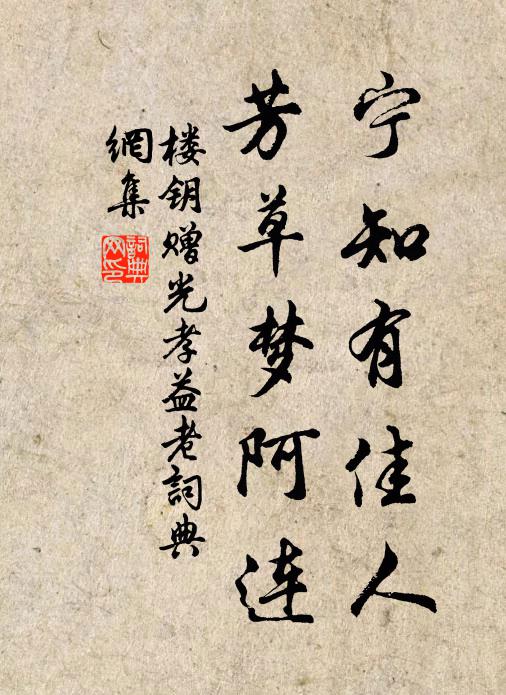 宁知有佳人
芳草梦阿连
楼钥赠光孝益老詞典
網集
詞典
网印